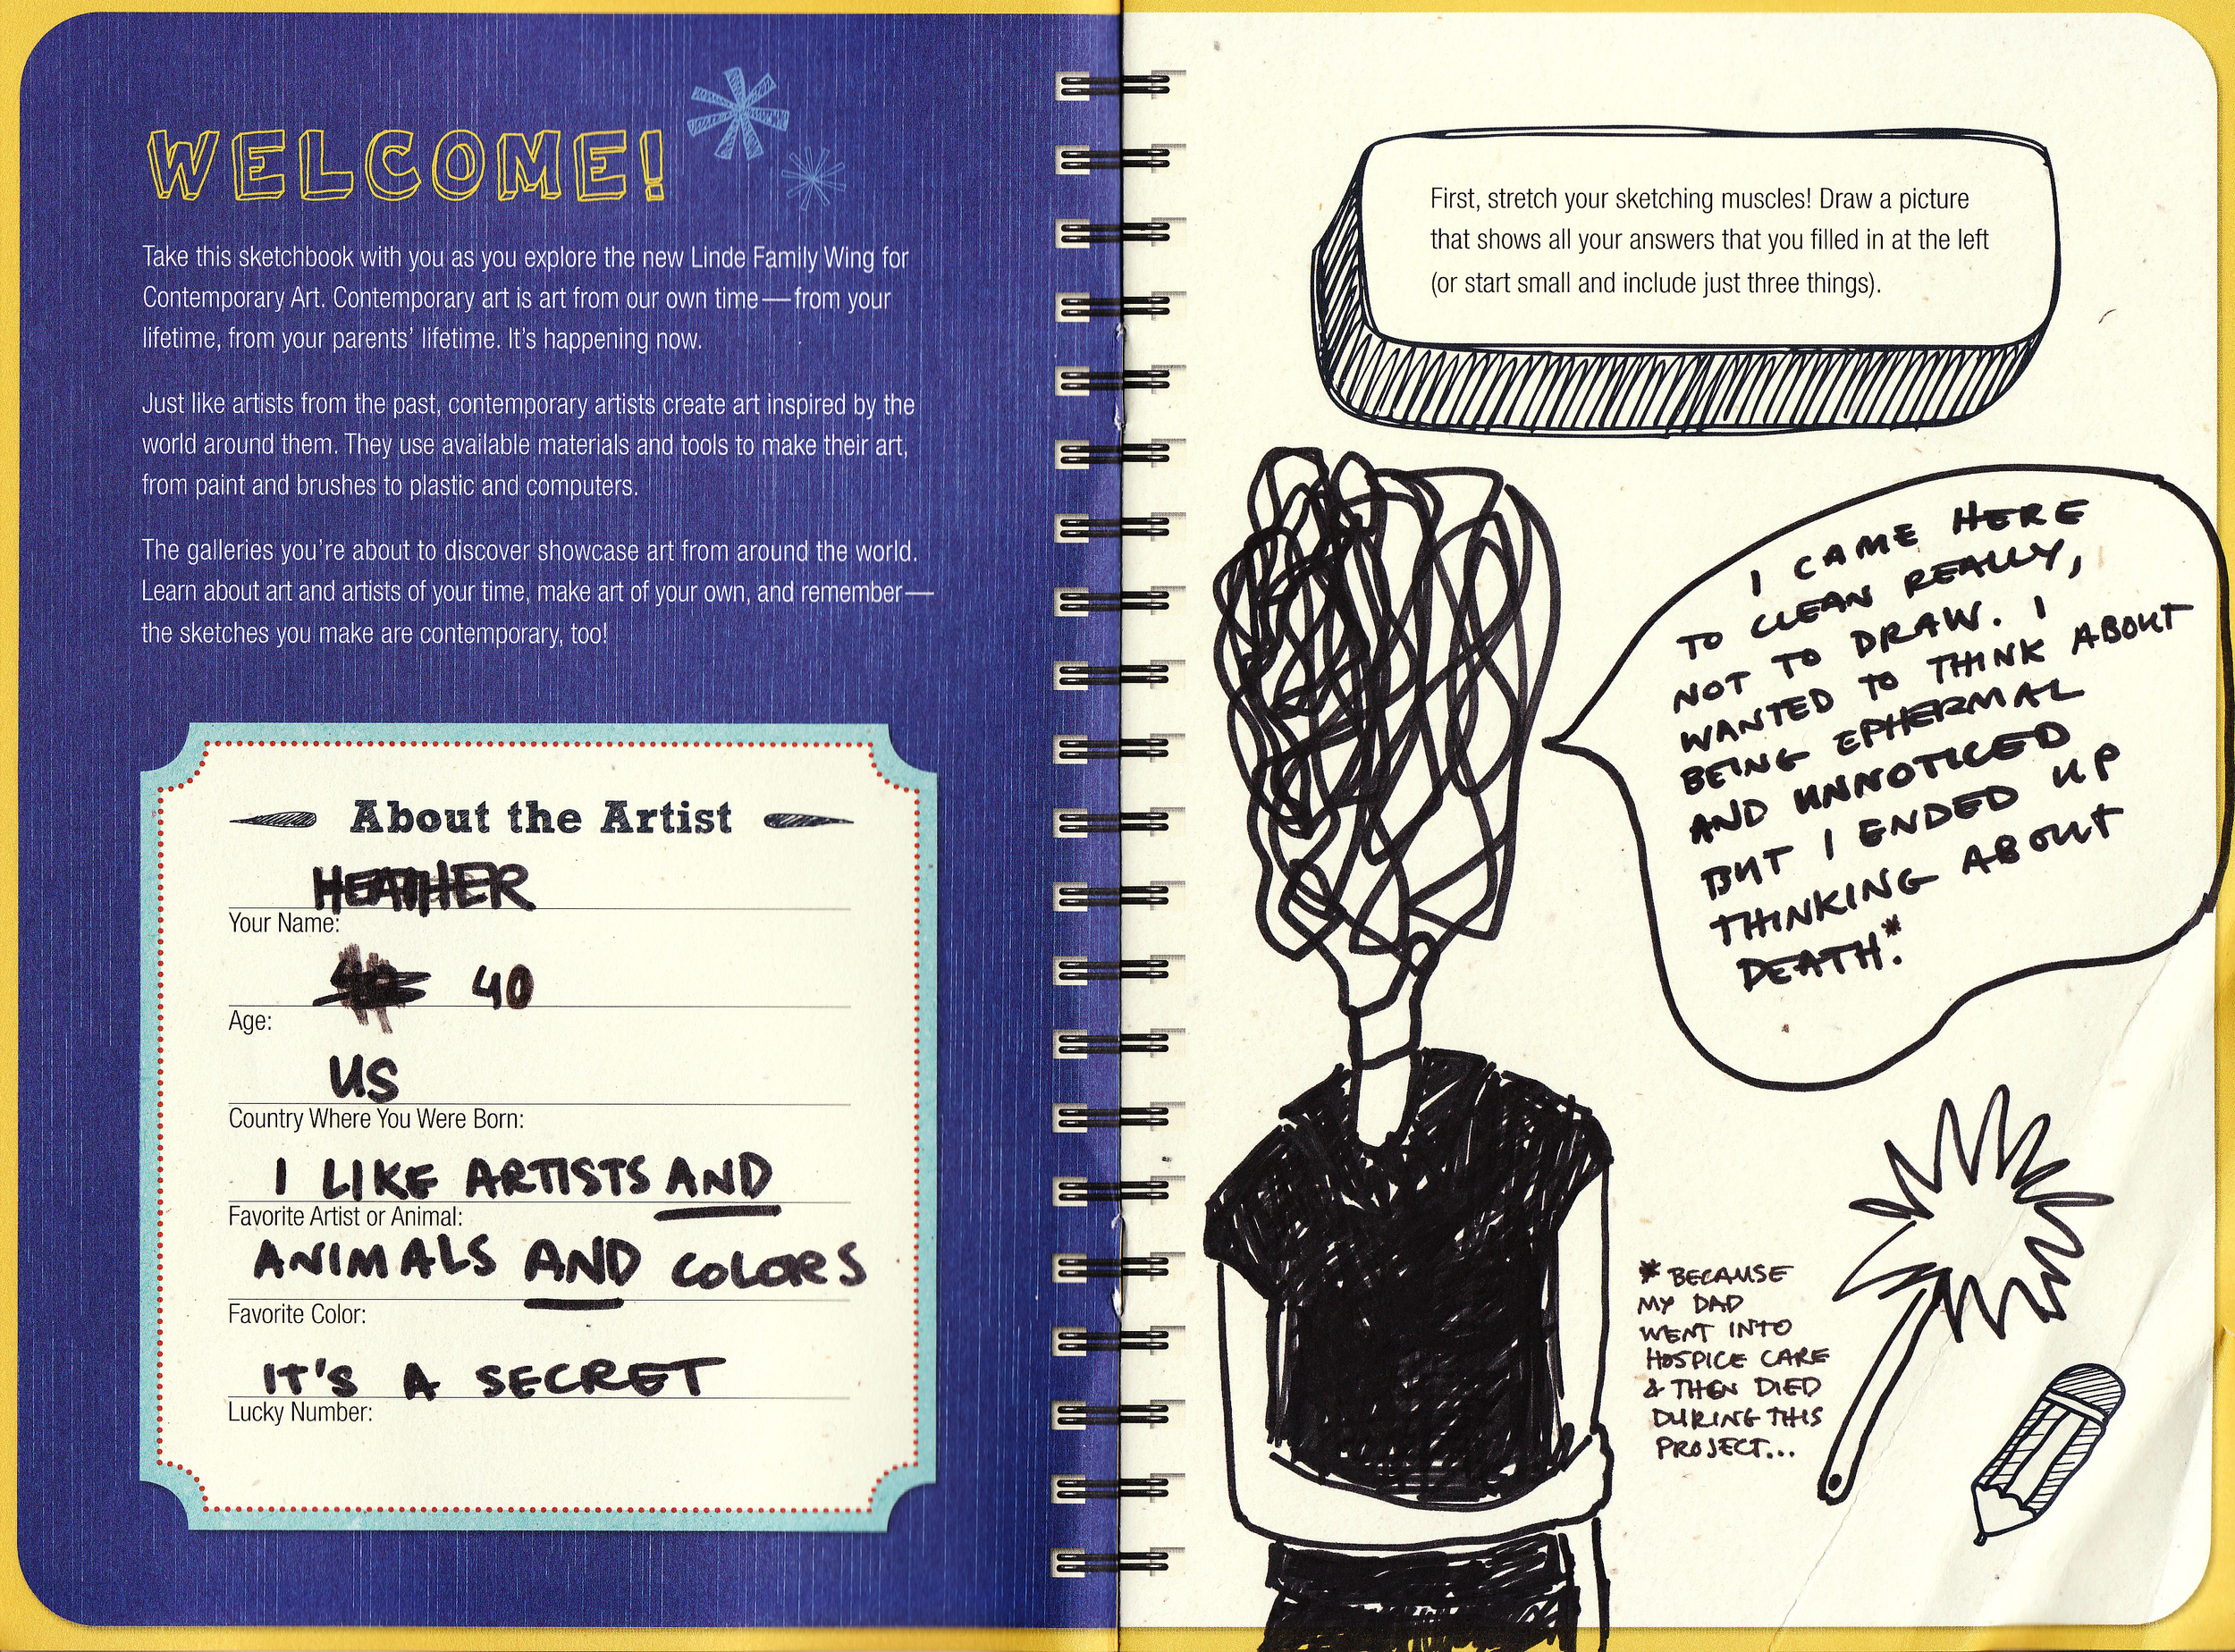 WELCOME!
Take this sketchbook with you as you explore the new Linde Family Wing for
Contemporary Art. Contemporary art is art from our own time—from your
lifetime, from your parents' lifetime. It's happening now.
Just like artists from the past, contemporary artists create art inspired by the
world around them. They use available materials and tools to make their art,
from paint and brushes to plastic and computers.
The galleries you're about to discover showcase art from around the world.
Learn about art and artists of your time, make art of your own, and remember—
the sketches you make are contemporary, too!
About the Artist
HEATHER
Your Name:
40
Age:
US
Country Where You Were Born:
I LIKE ARTISTS AND
Favorite Artist or Animal:
ANIMALS AND COLORS
Favorite Color:
IT'S A SECRET
Lucky Number:
First, stretch your sketching muscles! Draw a picture
that shows all your answers that you filled in at the left
(or start small and include just three things).
I CAME HERE
TO CLEAN REALLY,
NOT TO DRAW. I
WANTED TO THINK ABOUT
BEING EPHERMAL
AND UNNOTICED
BUT I ENDED UP
THINKING ABOUT
DEATH.*
* BECAUSE
MY DAD
WENT INTO
HOSPICE CARE
& THEN DIED
DURING THIS
PROJECT...